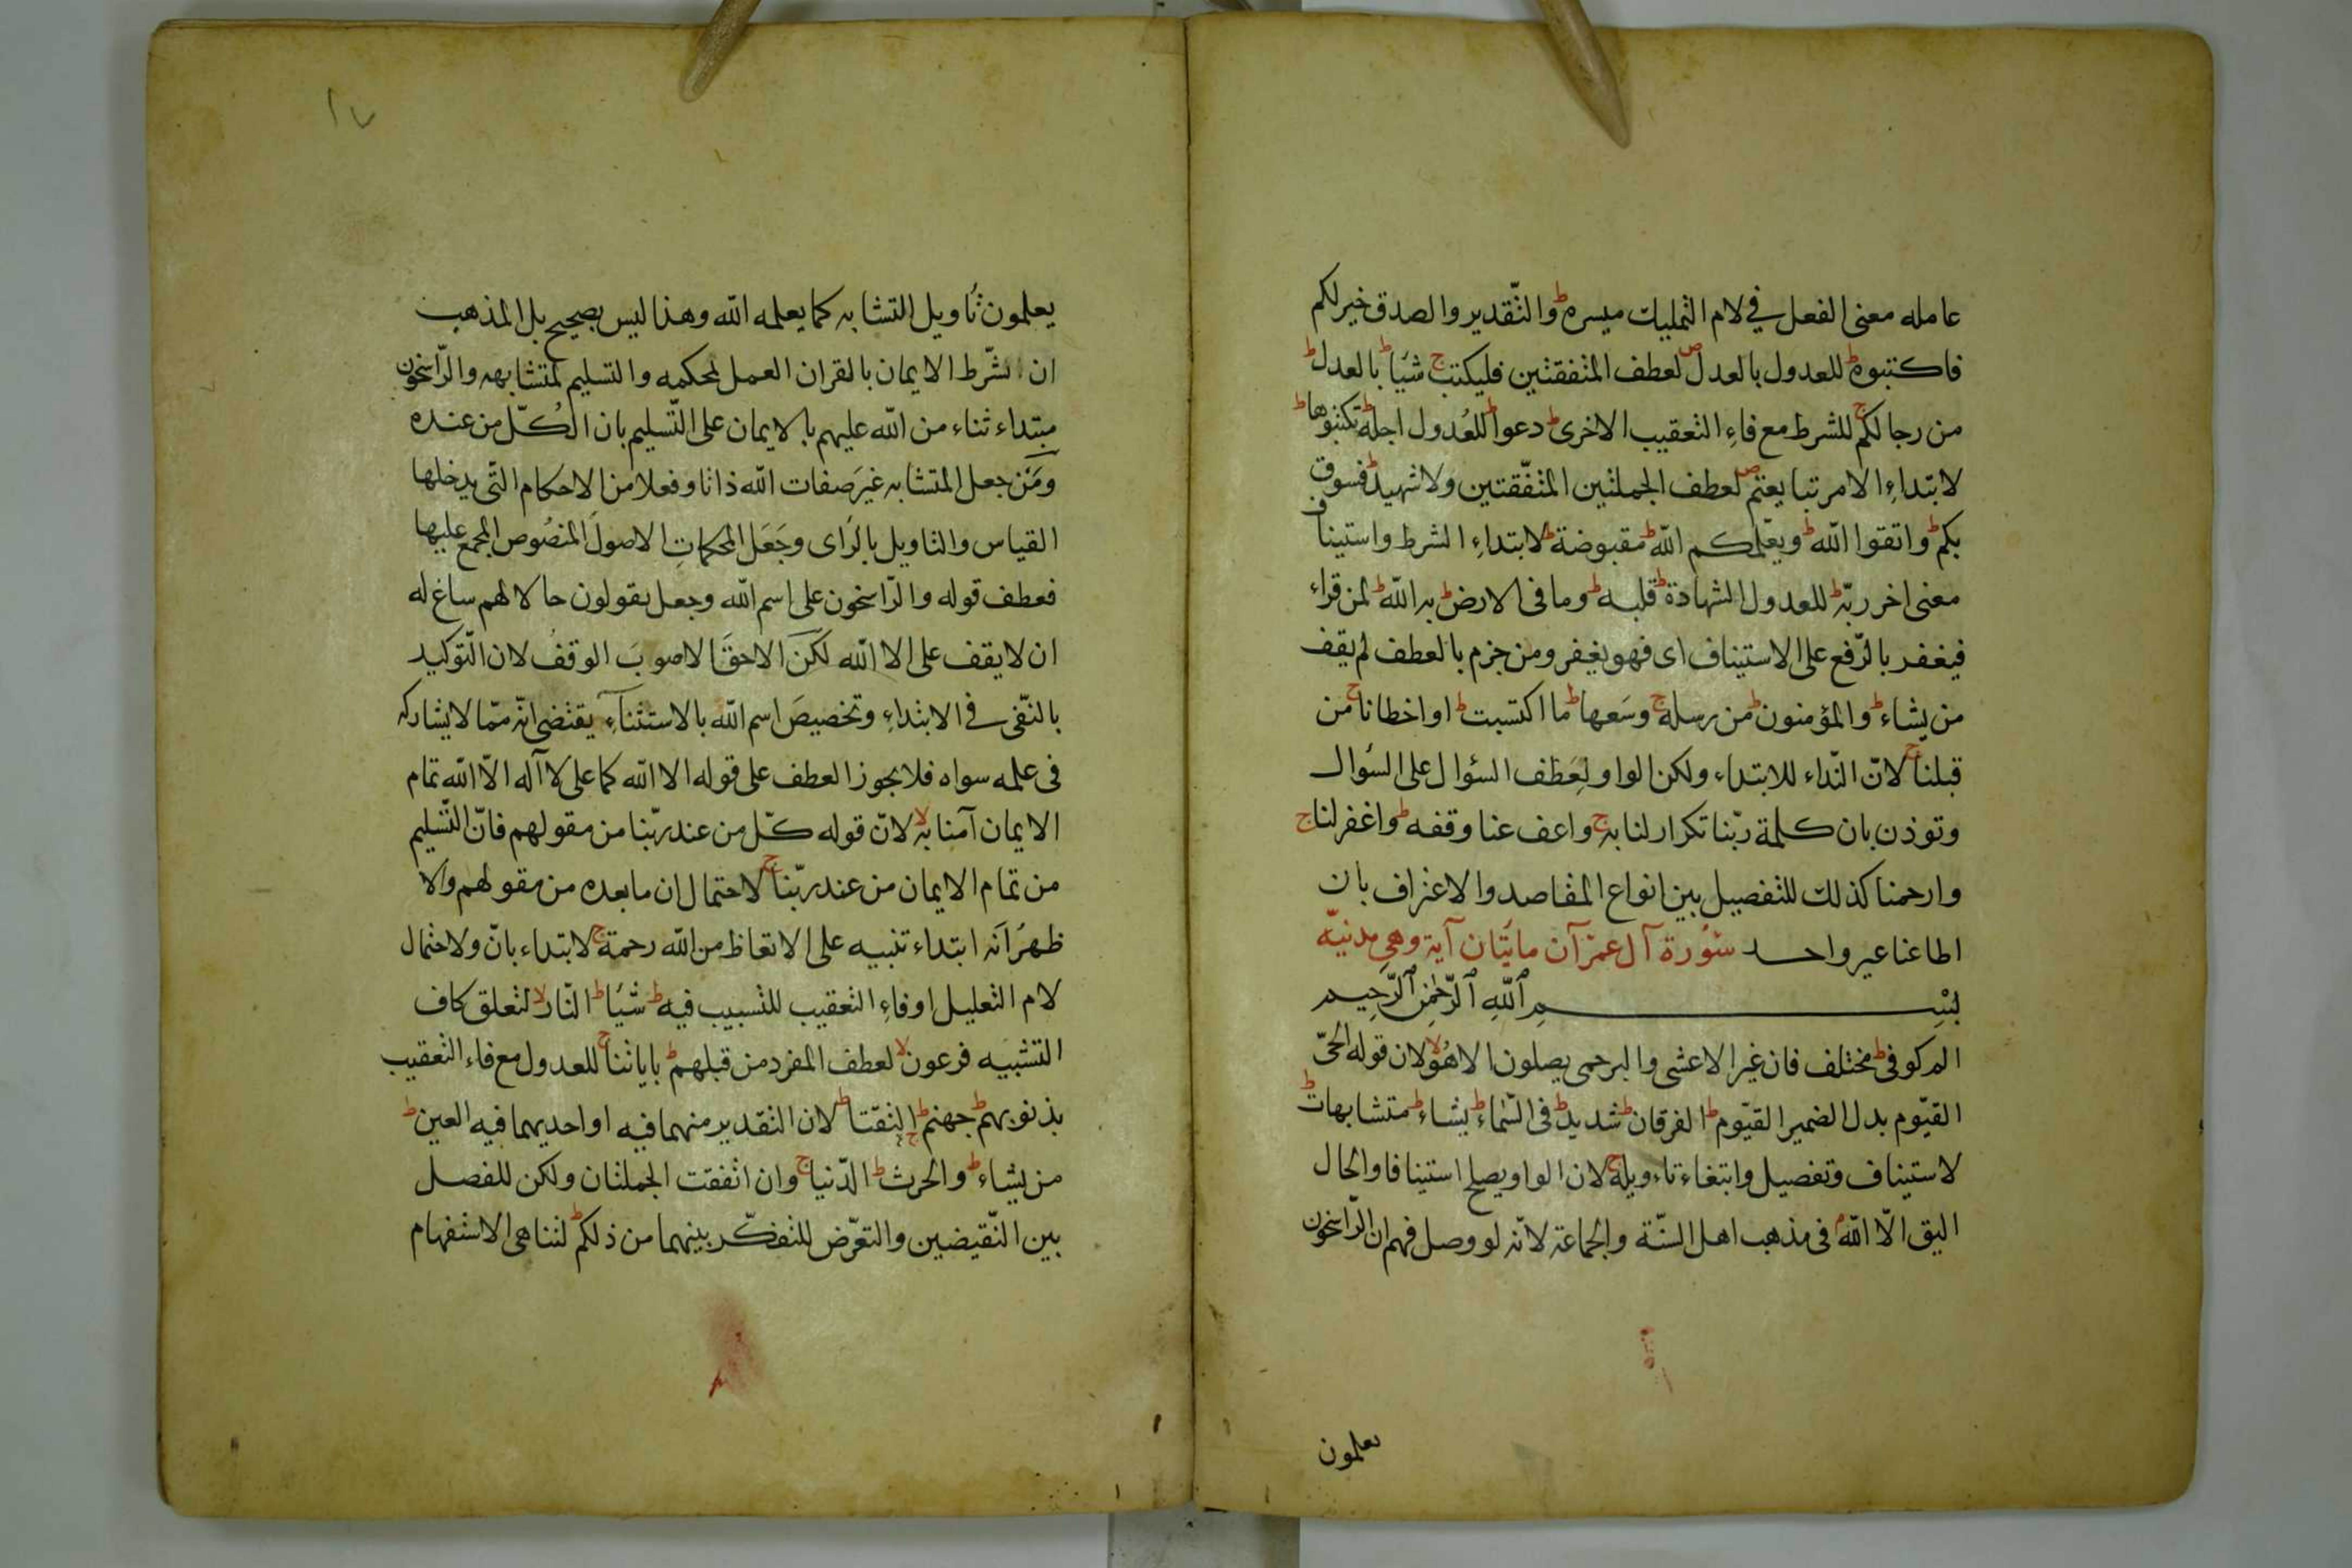 عامله معنى الفعل في لام التمليك ميسرة ط والتقدير والصدق خير لكم
فاكتبوه ط للعدول بالعدل ص لعطف المتفقتين فليكتب ج شيا ط بالعدل ط
من رجالكم ج للشرط مع فاء التعقيب الاخرى ط دعوا ط للعدول اجله ط تكتبوها ط
لابتداء الامر تبايعتم ص لعطف الجملتين المتفقتين ولا شهيد ط فسوق
بكم ط واتقوا الله ط ويعلمكم الله ط مقبوضة ط لابتداء الشرط واستيناف
معنى اخر ربه ط للعدول الشهادة ط قلبه ط وما في الارض ط به الله ط لمن قراء
فيغفر بالرفع على الاستيناف اى فهو يغفر ومن جزم بالعطف لم يقف
من يشاء ط والمؤمنون ط من رسله ج وسعها ط ما اكتسبت ط او اخطانا ج من
قبلنا ج لان النداء للابتداء ولكن الواو لعطف السؤال على السؤال
وتوذن بان كلمة ربنا تكرار لنا به ج واعف عنا وقفه ط واغفر لنا ج
وارحمنا كذلك للتفصيل بين انواع المقاصد والاعتراف بان
اطماعنا غير واحد سورة آل عمران مائتان آية وهي مدنية
بسم الله الرحمن الرحيم
الم كوفى ط مختلف فان غير الاعشى والبرجمى يصلون الا هو لا لان قوله الحى
القيوم بدل الضمير القيوم ط الفرقان ط شديد ط فى السماء ط يشاء ط متشابهات ط
لاستيناف وتفصيل وابتغاء تاءويله ج لان الواو يصلح استينافا والحال
اليق الا الله م فى مذهب اهل السنة والجماعة لانه لو وصل فهم ان الراسخون
يعلمون
١٧
يعلمون تاويل المتشابه كما يعلمه الله وهذا ليس بصحيح بل المذهب
ان شرط الايمان بالقران العمل لمحكمه والتسليم لمتشابهه والراسخون
مبتداء ثناء من الله عليهم بالايمان على التسليم بان الكل من عنده
ومن جعل المتشابه غير صفات الله ذاتا وفعلا من الاحكام التى يدخلها
القياس والتاويل بالراى وجعل المحكمات الاصول المنصوص المجمع عليها
فعطف قوله والراسخون على اسم الله وجعل يقولون حالا لهم ساغ له
ان لا يقف على الا الله لكن الاحق الاصوب الوقف لان التوكيد
بالنفى في الابتداء وتخصيص اسم الله بالاستثناء يقتضى انه مما لا يشاركه
فى علمه سواه فلا يجوز العطف على قوله الا الله كما على لا آله الا الله تمام
الايمان آمنا به لا لان قوله كل من عند ربنا من مقولهم فان التسليم
من تمام الايمان من عند ربنا ج لاحتمال ان ما بعده من مقولهم والا
ظهر انه ابتداء تنبيه على الاتعاظ من الله رحمة ج لابتداء بان ولاحتمال
لام التعليل او فاء التعقيب للتسبيب فيه ط شيا ط النار لا لتعلق كاف
التشبيه فرعون لا لعطف المفرد من قبلهم ط باياتنا ج للعدول مع فاء التعقيب
بذنوبهم ط جهنم ط التقتا ط لان التقدير منهما فيه او احديهما فيه العين ط
من يشاء ط والحرث ط الدنيا ج وان اتفقت الجملتان ولكن للفصل
بين النقيضين والتعرض للتفكر بينهما من ذلكم ط لتناهى الاستفهام